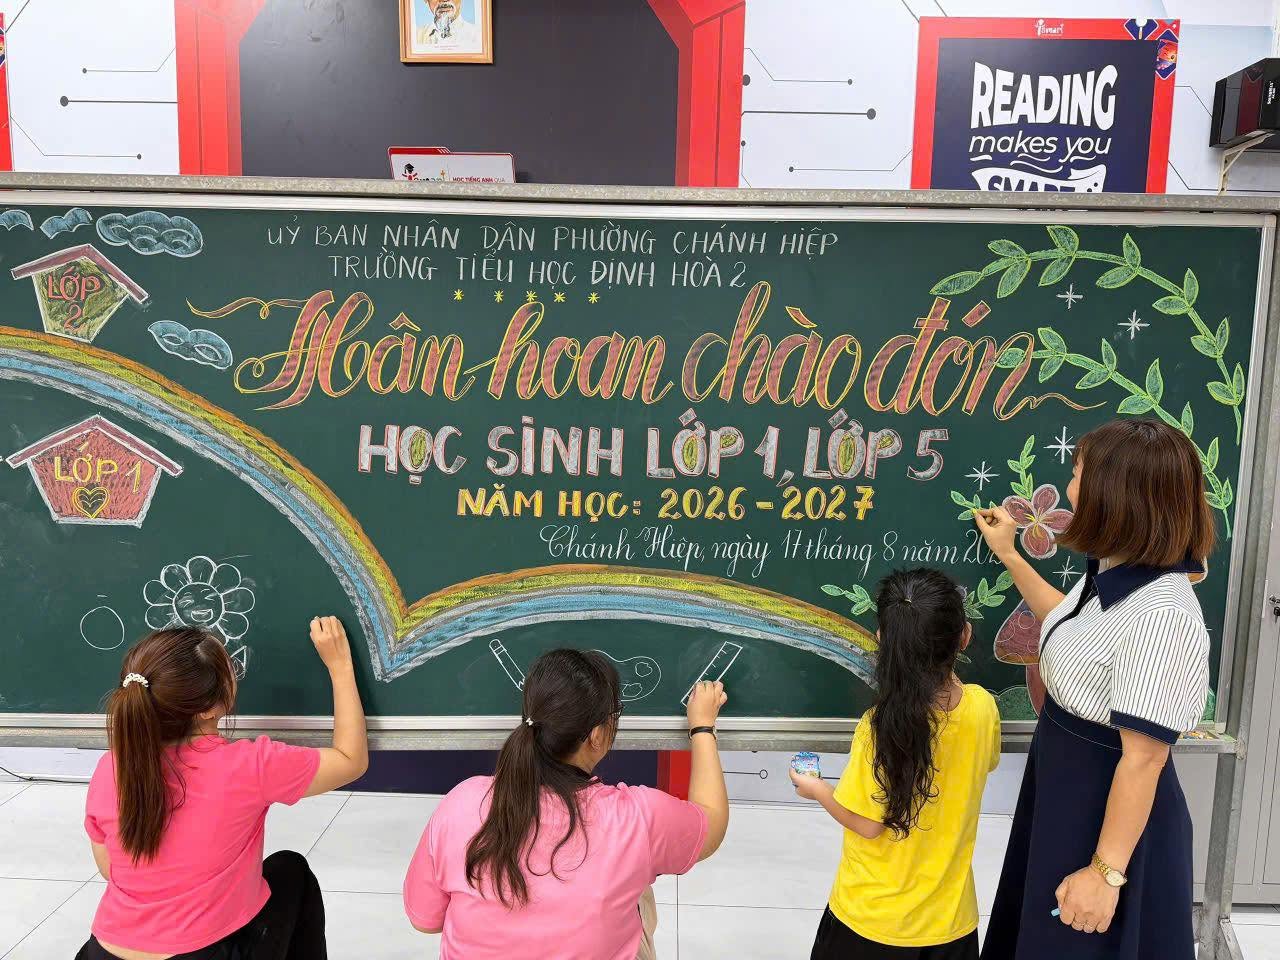 Smart
READING
makes you
SMART
HỌC TIẾNG ANH QUA
UỶ BAN NHÂN DÂN PHƯỜNG CHÁNH HIỆP
TRƯỜNG TIỂU HỌC ĐỊNH HOÀ 2
Hân hoan chào đón
HỌC SINH LỚP 1, LỚP 5
NĂM HỌC: 2026 - 2027
Chánh Hiệp, ngày 17 tháng 8 năm
LỚP
2
LỚP 1